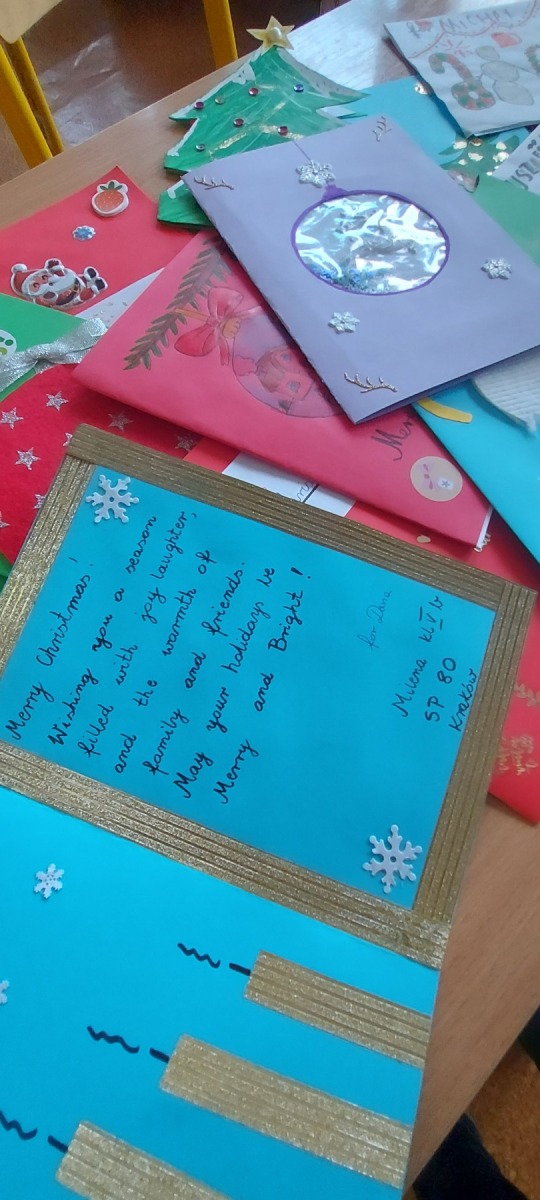 Merry Christmas!
Wishing you a season
filled with joy, laughter,
and the warmth of
family and friends.
May your holidays be
Merry and Bright!
for Daria
Milena kl V b
SP 80
Kraków
Mer